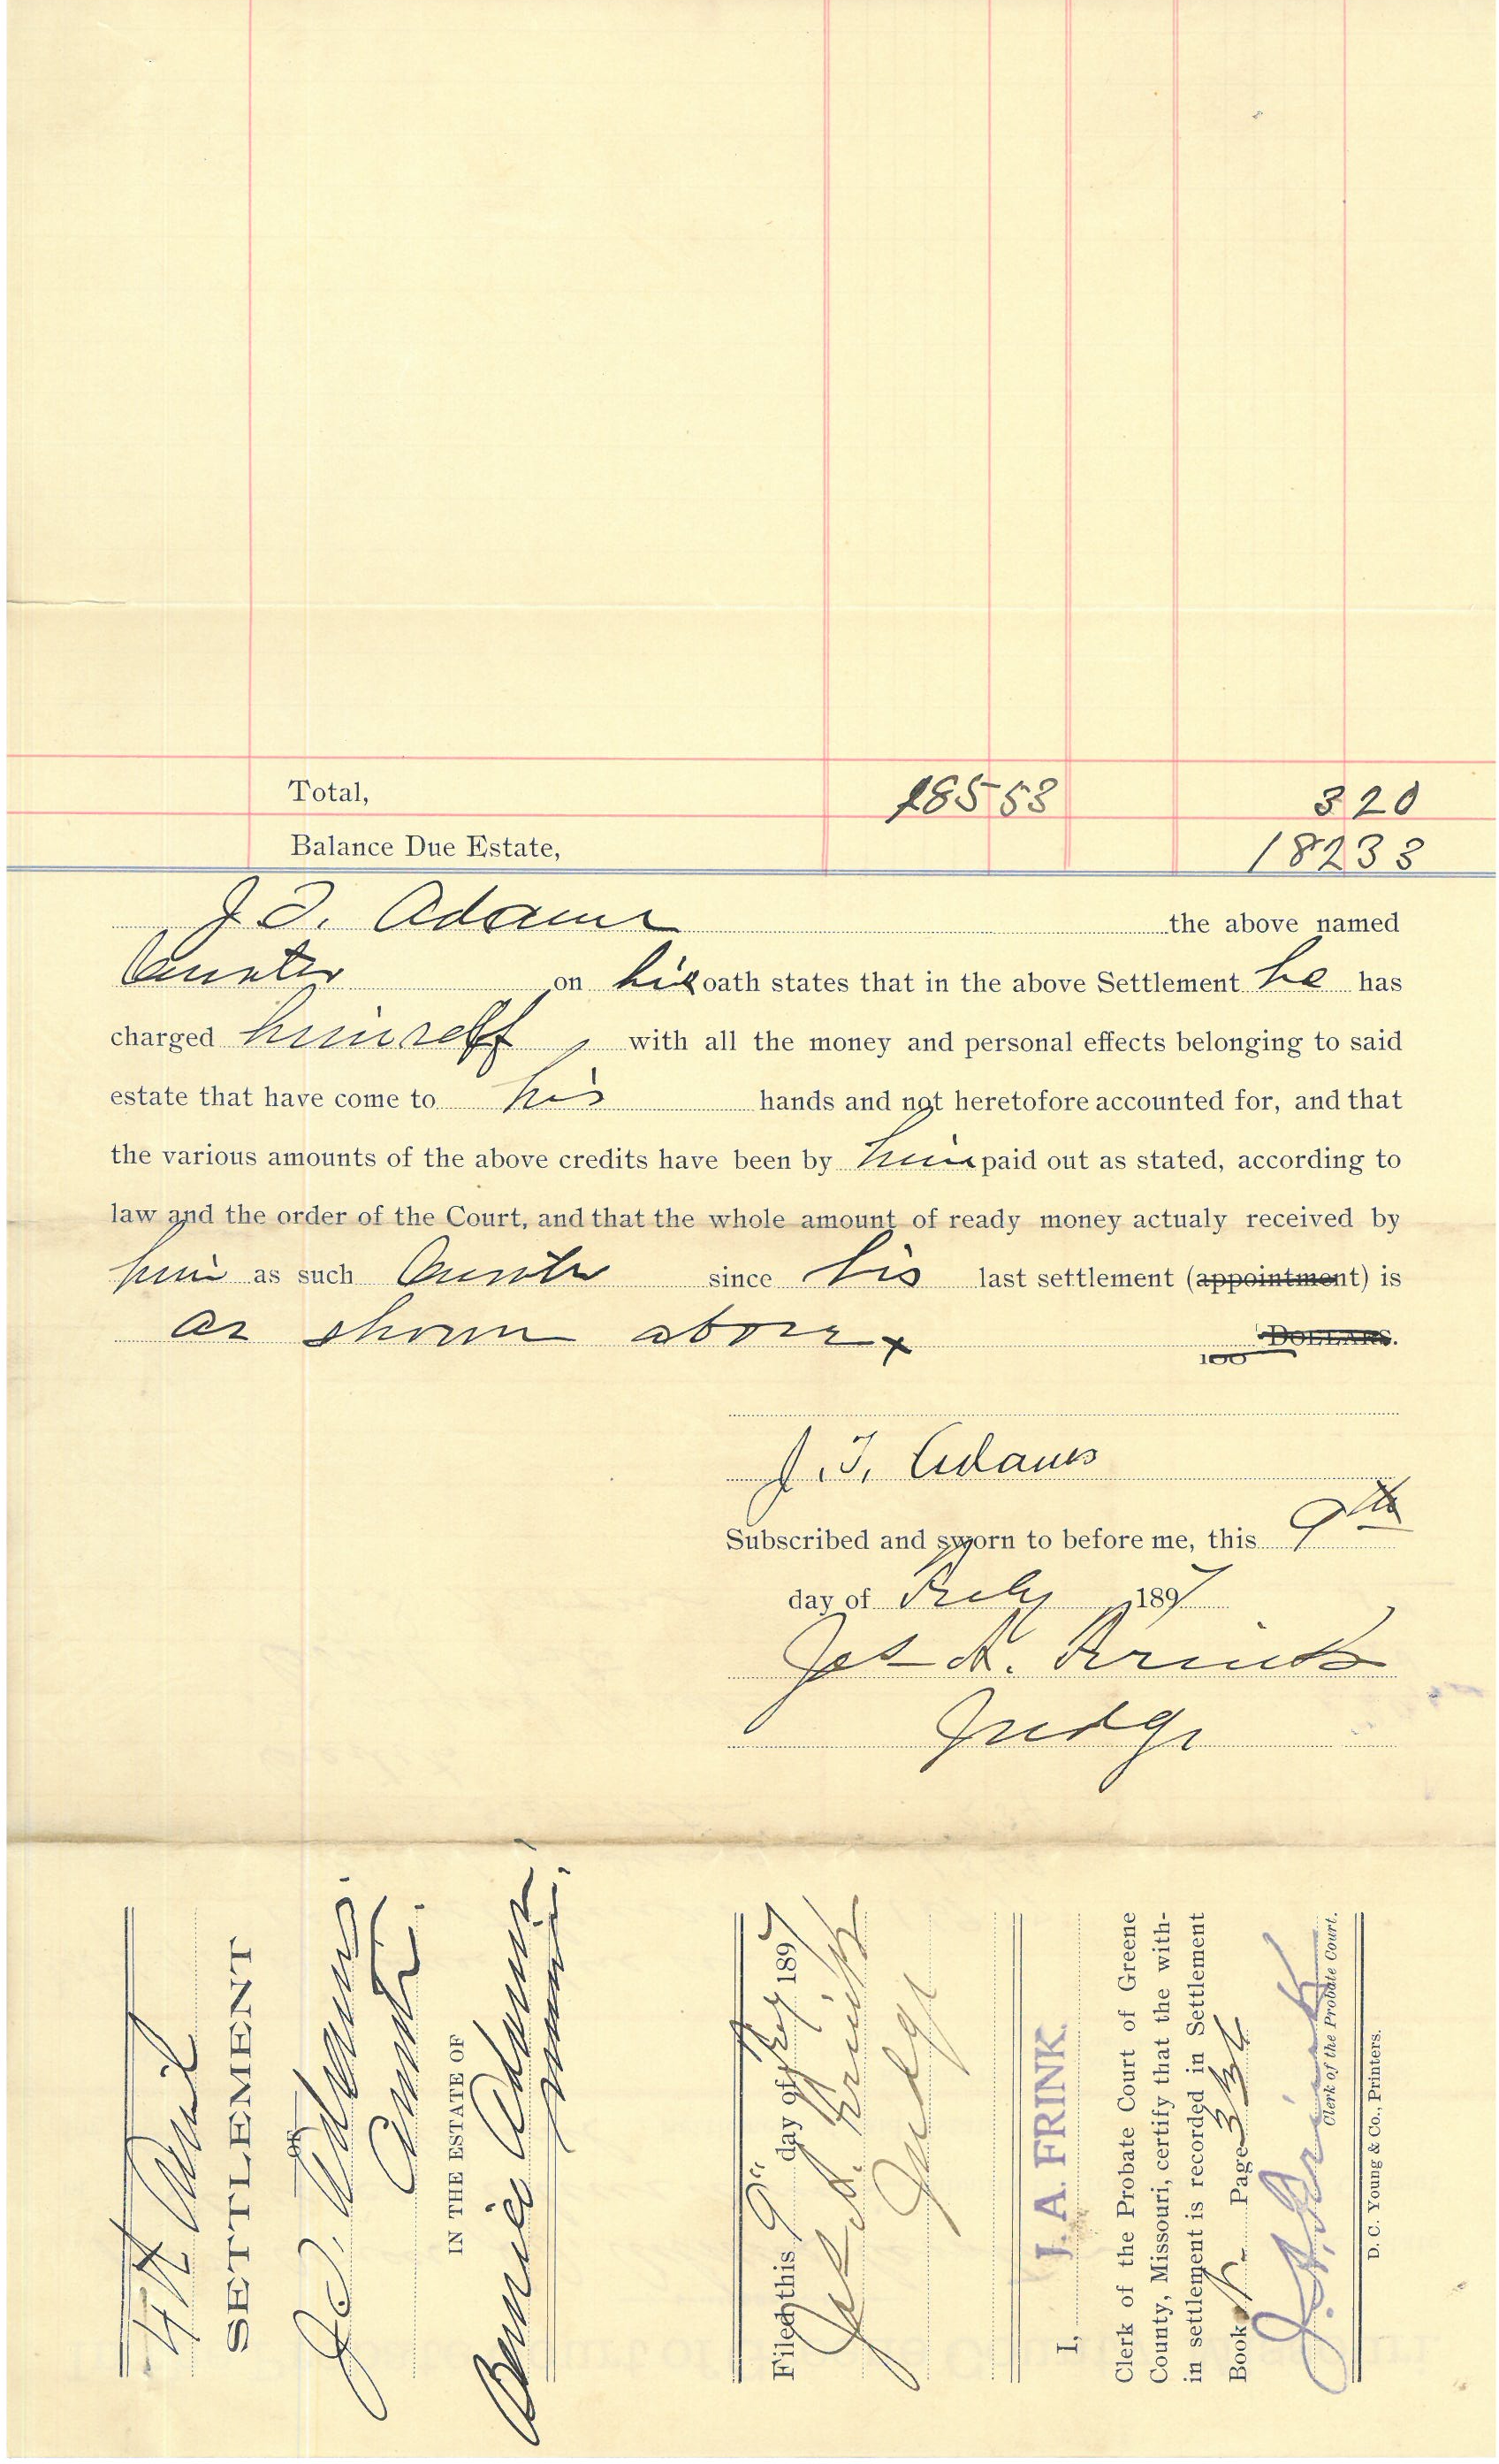 Total, 185 53 3 20
Balance Due Estate, 182 33
J. T. Adams the above named
Curator on his oath states that in the above Settlement he has
charged himself with all the money and personal effects belonging to said
estate that have come to his hands and not heretofore accounted for, and that
the various amounts of the above credits have been by him paid out as stated, according to
law and the order of the Court, and that the whole amount of ready money actualy received by
him as such Curator since his last settlement (appointment) is
as shown above x 100 DOLLARS.
J. T. Adams
Subscribed and sworn to before me, this 9th
day of July 1897
Jos A. Frink
Judge
4th Annual
SETTLEMENT
OF
J. T. Adams.
Curator.
IN THE ESTATE OF
Bernice Adams,
minor.
Filed this 9" day of July 1897
Jos A. Frink
Judge
I, J. A. FRINK.
Clerk of the Probate Court of Greene
County, Missouri, certify that the with-
in settlement is recorded in Settlement
Book Page
J. A. Frink
Clerk of the Probate Court.
D. C. Young & Co., Printers.